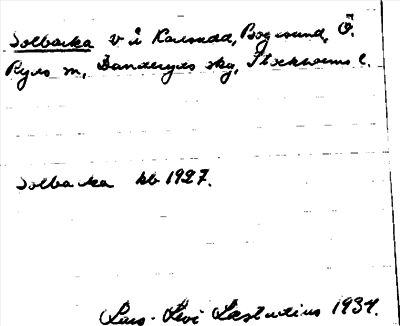 Solbacka v å Karsudd, Bogesund, Ö.
Ryds sn, Danderyds skg, Stockholms l.
Solbacka kb 1927.
Lars-Levi Læstadius 1934.